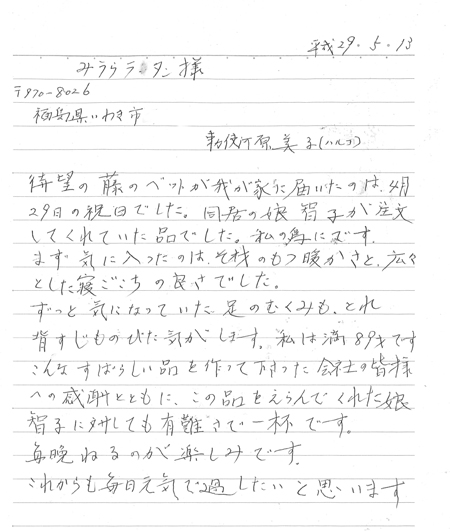 平成29.5.13
みうらラタン様
〒970-8026
福島県いわき市
勅使河原美子(ハルコ)
待望の藤のベットが我が家に届いたのは、4月
29日の祝日でした。同居の娘 智子が注文
してくれていた品でした。私の為にです。
まず気に入ったのは、そ材のもつ暖かさと、広々
とした寝ごこちの良さでした。
ずっと気になっていた足のむくみも、とれ
背すじものびた気がします。私は満89才です
こんなすばらしい品を作って下さった会社の皆様
への感謝とともに、この品をえらんでくれた娘
智子に対しても有難さで一杯です。
毎晩ねるのが楽しみです。
これからも毎日元気で過したいと思います